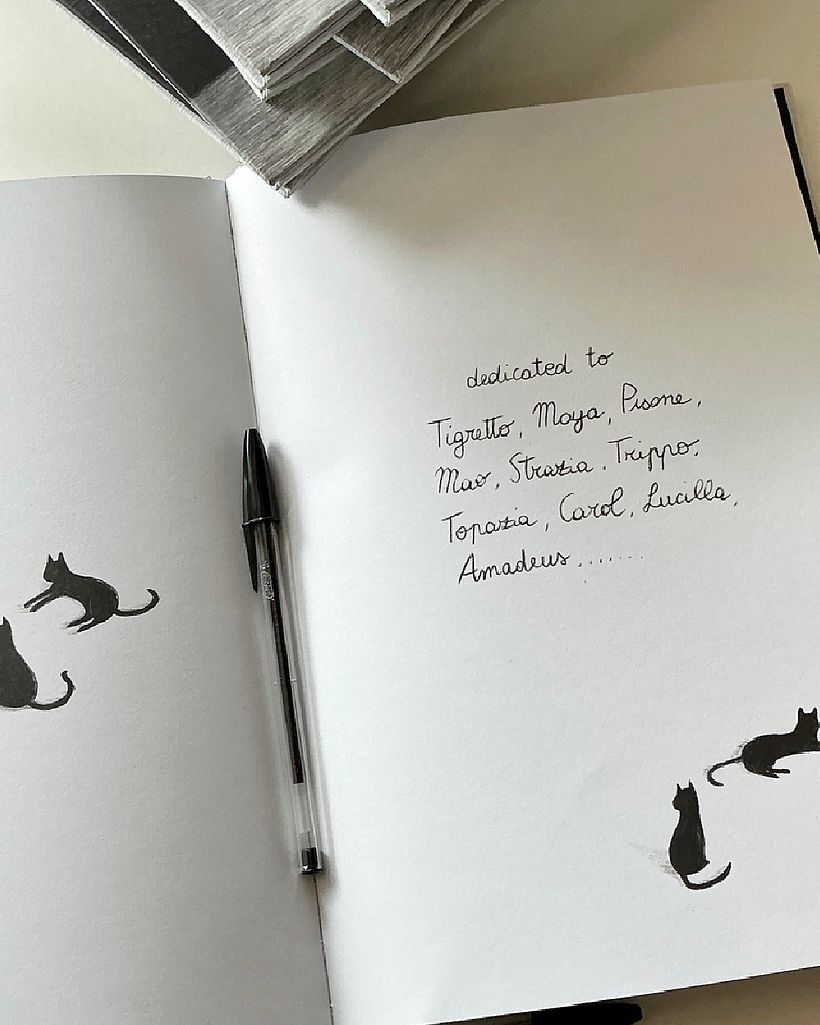 dedicated to
Tigretto, Maya, Pisone,
Mao, Strazia, Trippo,
Topazia, Carol, Lucilla,
Amadeus ........